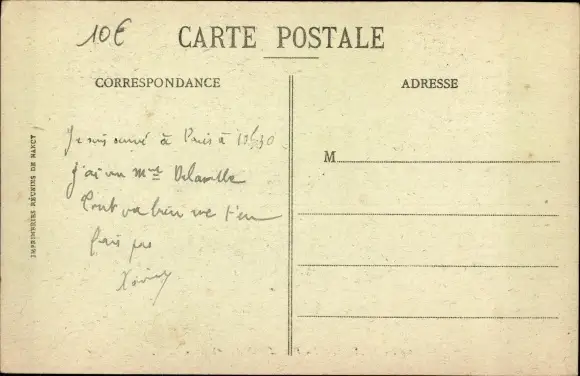 10€
CARTE POSTALE
CORRESPONDANCE
ADRESSE
Je suis arrivé à Paris à 13h30
J'ai vu Mme
Tout va bien ne t'en
fais pas
M
IMPRIMERIES RÉUNIES DE NANCY